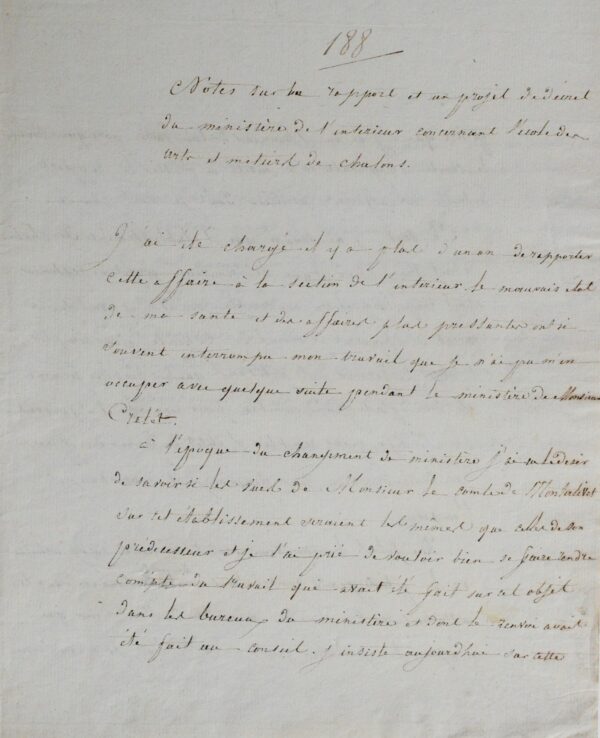 188
Notes sur un rapport et un projet de décret
du ministère de l'interieur concernant l'ecole des
arts et metiers de chalons.
J'ai été chargé il y a plus d'un an de rapporter
cette affaire à la section de l'interieur. le mauvais etat
de ma santé et des affaires plus pressantes ont si
souvent interrompu mon travail que je n'ai pu m'en
occuper avec quelque suite pendant le ministère de Monsieur
Crétet.
à l'époque du changement de ministère j'ai eu le desir
de savoir si les vues de Monsieur le comte de Montalivet
sur cet etablissement seraient les mêmes que celles de son
predecesseur et je l'ai prié de vouloir bien se faire rendre
compte du travail qui avait été fait sur cet objet
dans les bureaux du ministère et dont le renvoi avait
été fait au conseil. j'insiste aujourdhui sur cette